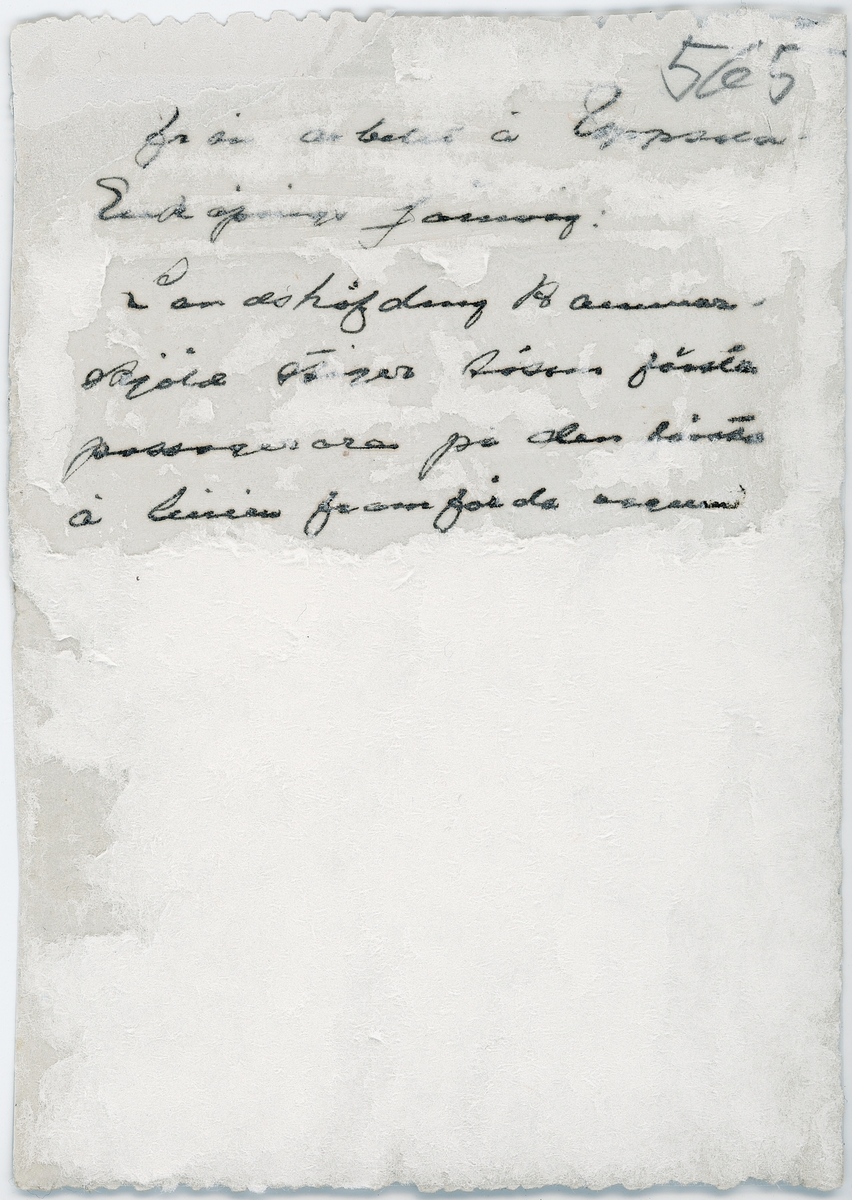 565
från arbetet å Uppsala-
Enköpings järnväg:
Landshöfding Hammar-
skjöld stiger såsom första
passagerare på den första
å linien framförda vagnen